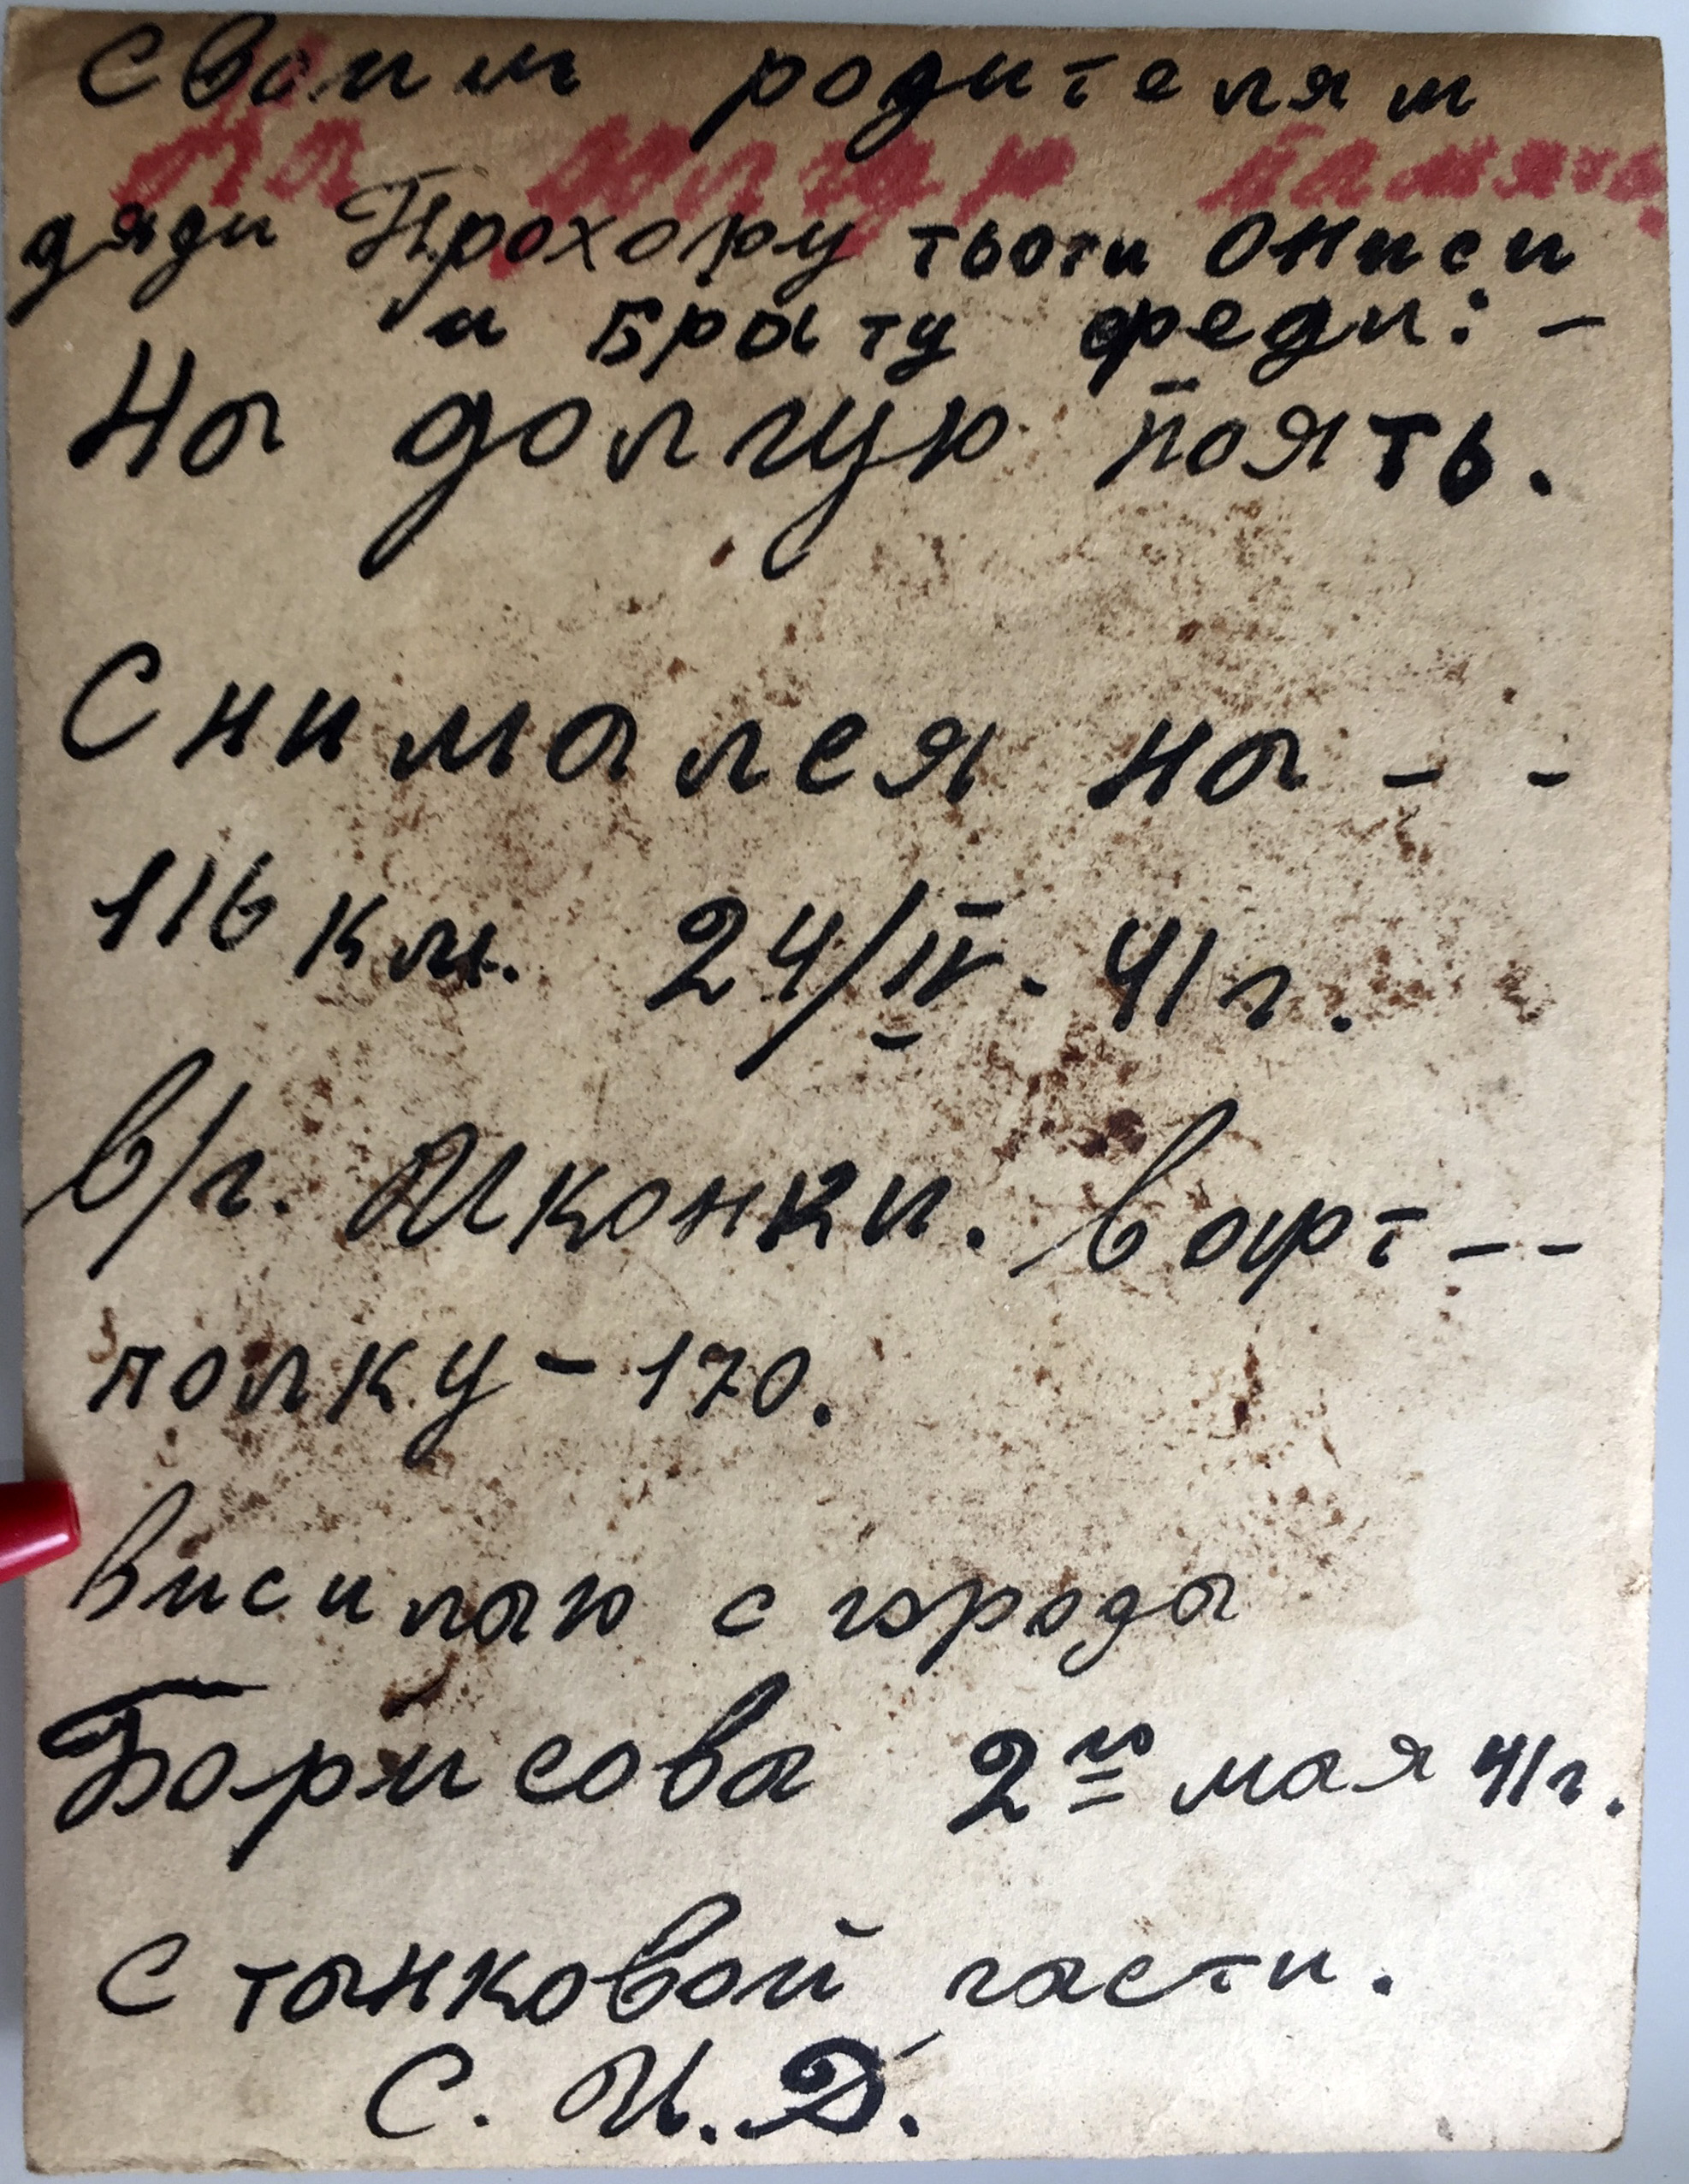 Своим родителям
На долгую память
дяди Прохору тьоти Ониси
и Брату феди: -
На долгую паять.
Снимался на - -
116 км. 24/IV - 41 г.
в/г. Иконки. в арт - -
полку - 170.
висилаю с города
Борисова 2го мая 41г.
С танковой части.
С. И. Д.